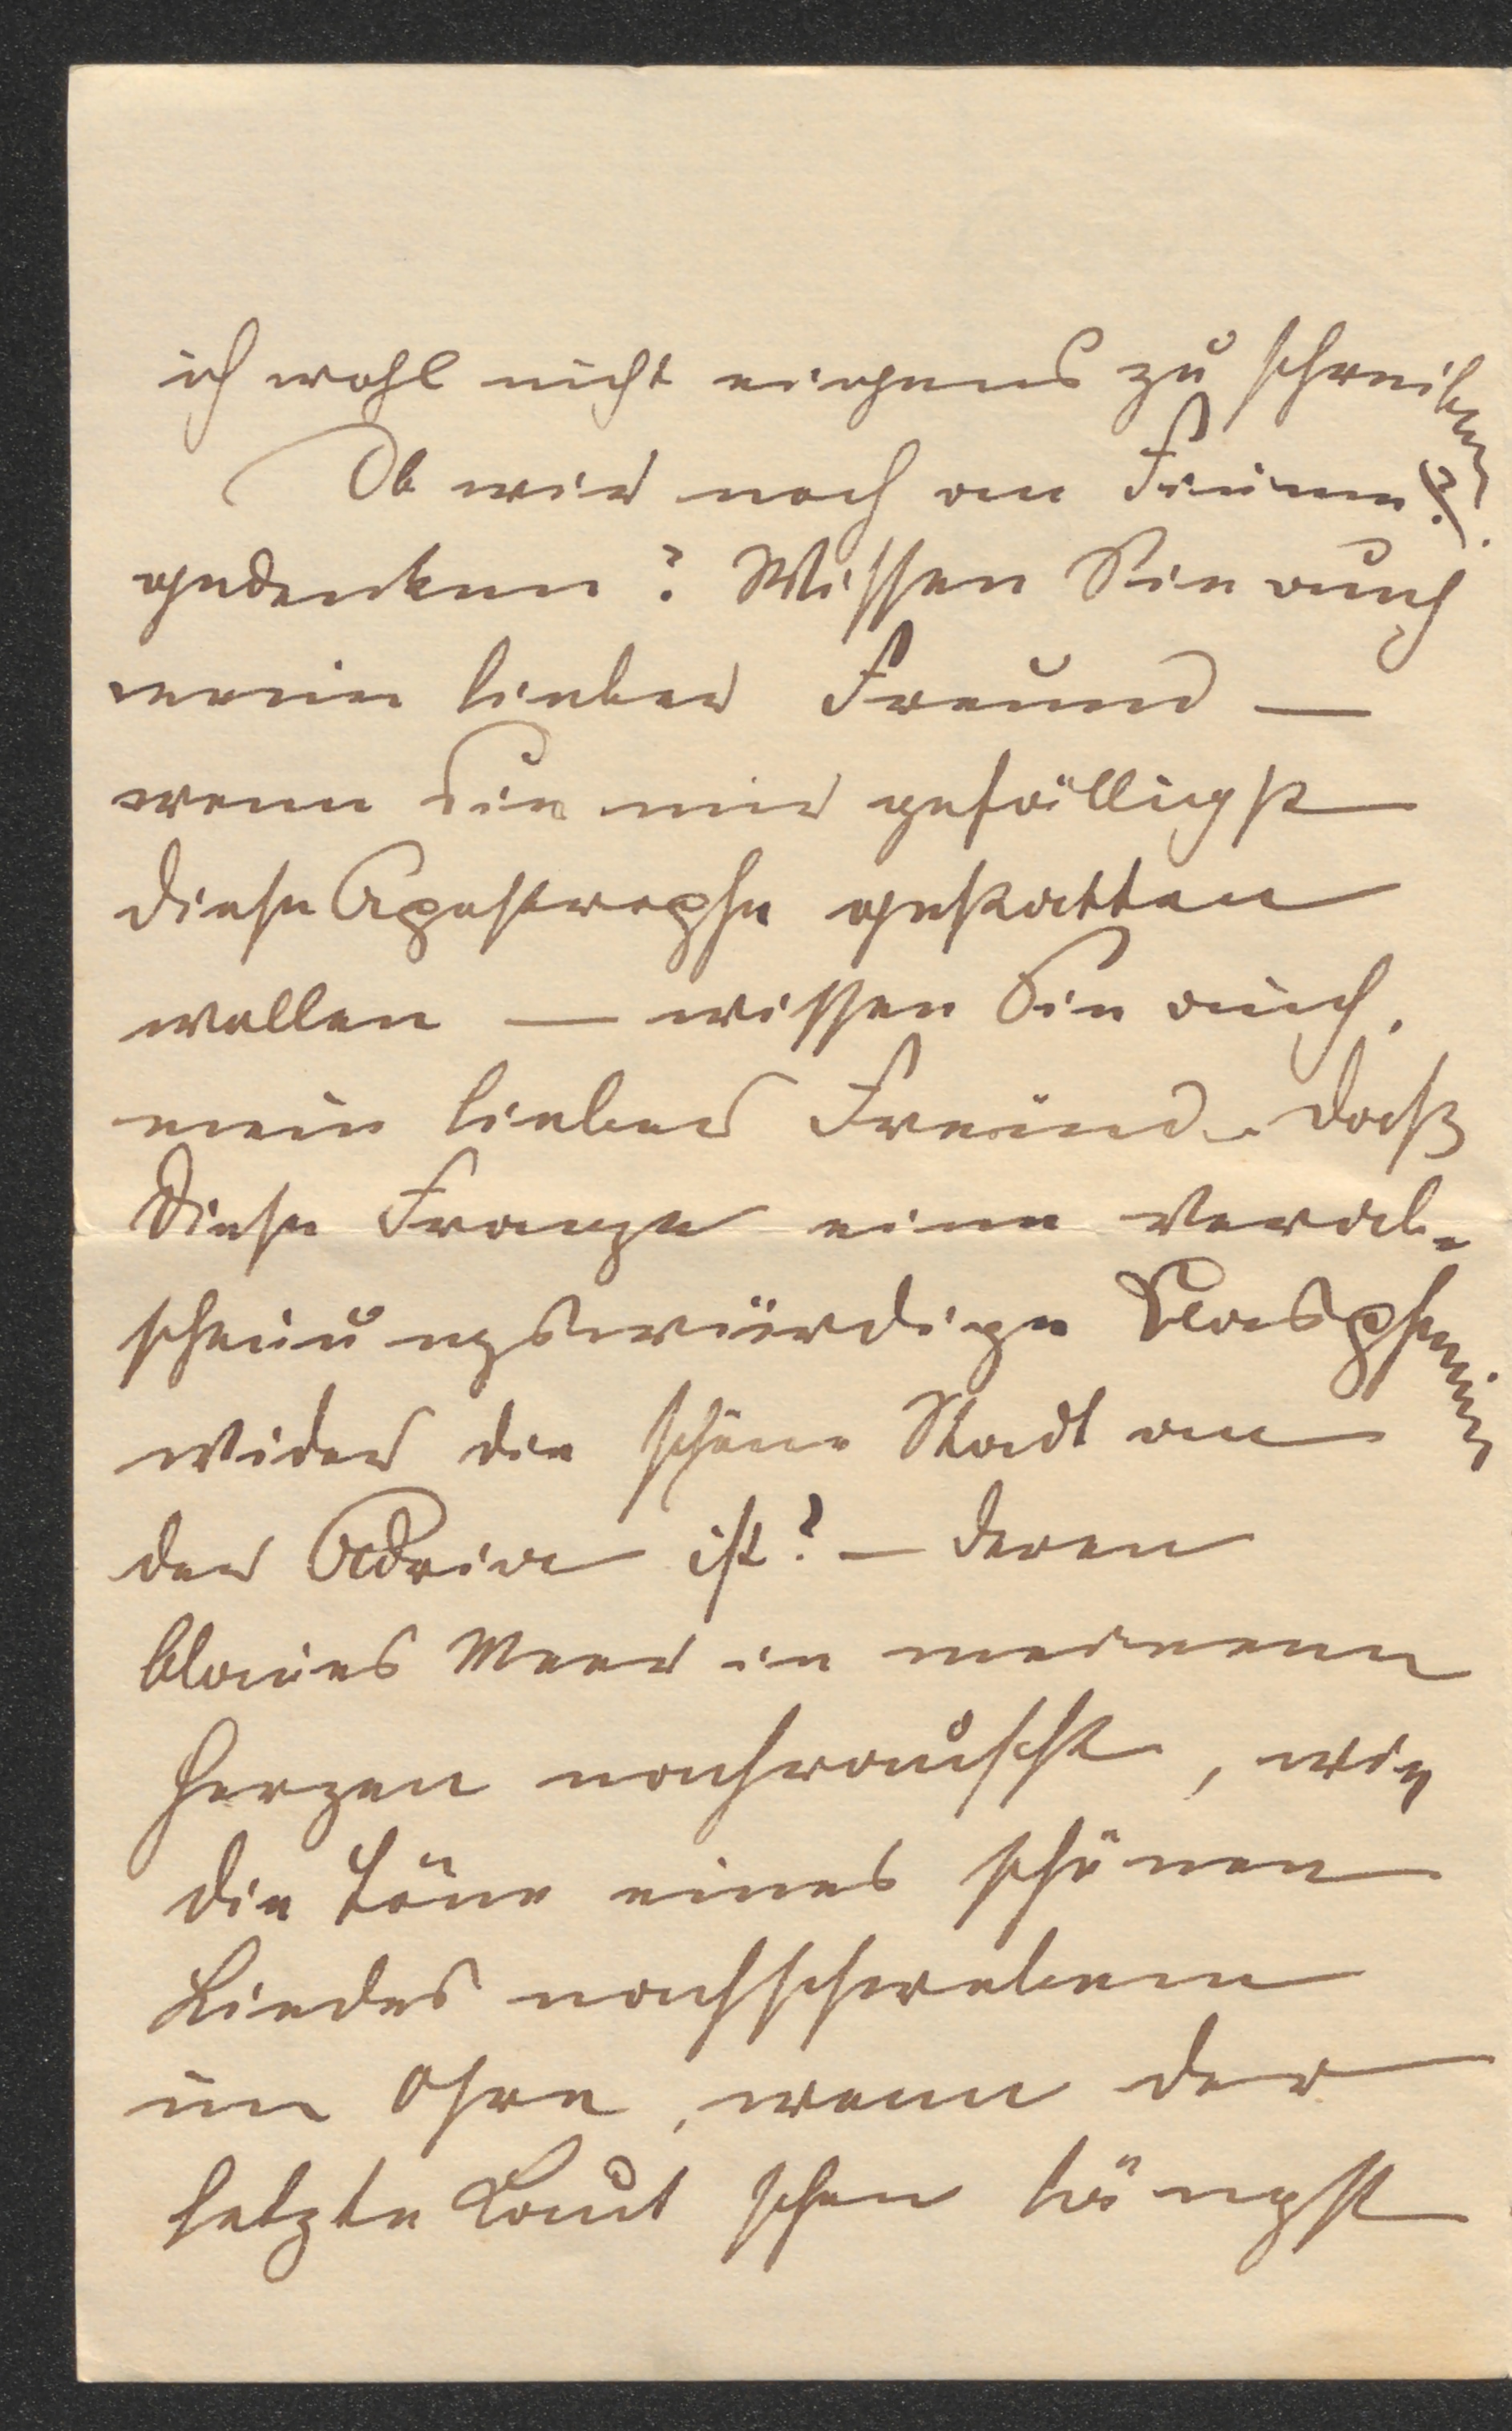 ich wohl nicht eigens zu schreiben?).
Ob wir noch an Fiume
gedenken? Wissen Sie auch
mein lieber Freund —
wenn Sie mir gefälligst
diese Apostrophe gestatten
wollen — wissen Sie auch,
mein lieber Freund, daß
diese Frage eine verab-
scheuungswürdige Blasphemie
wider die schöne Stadt an
der Adria ist? — deren
blaues Meer in meinem
Herzen nachrauscht, wie
die Töne eines schönen
Liedes nachschweben
im Ohre, wenn der
letzte Laut schon längst